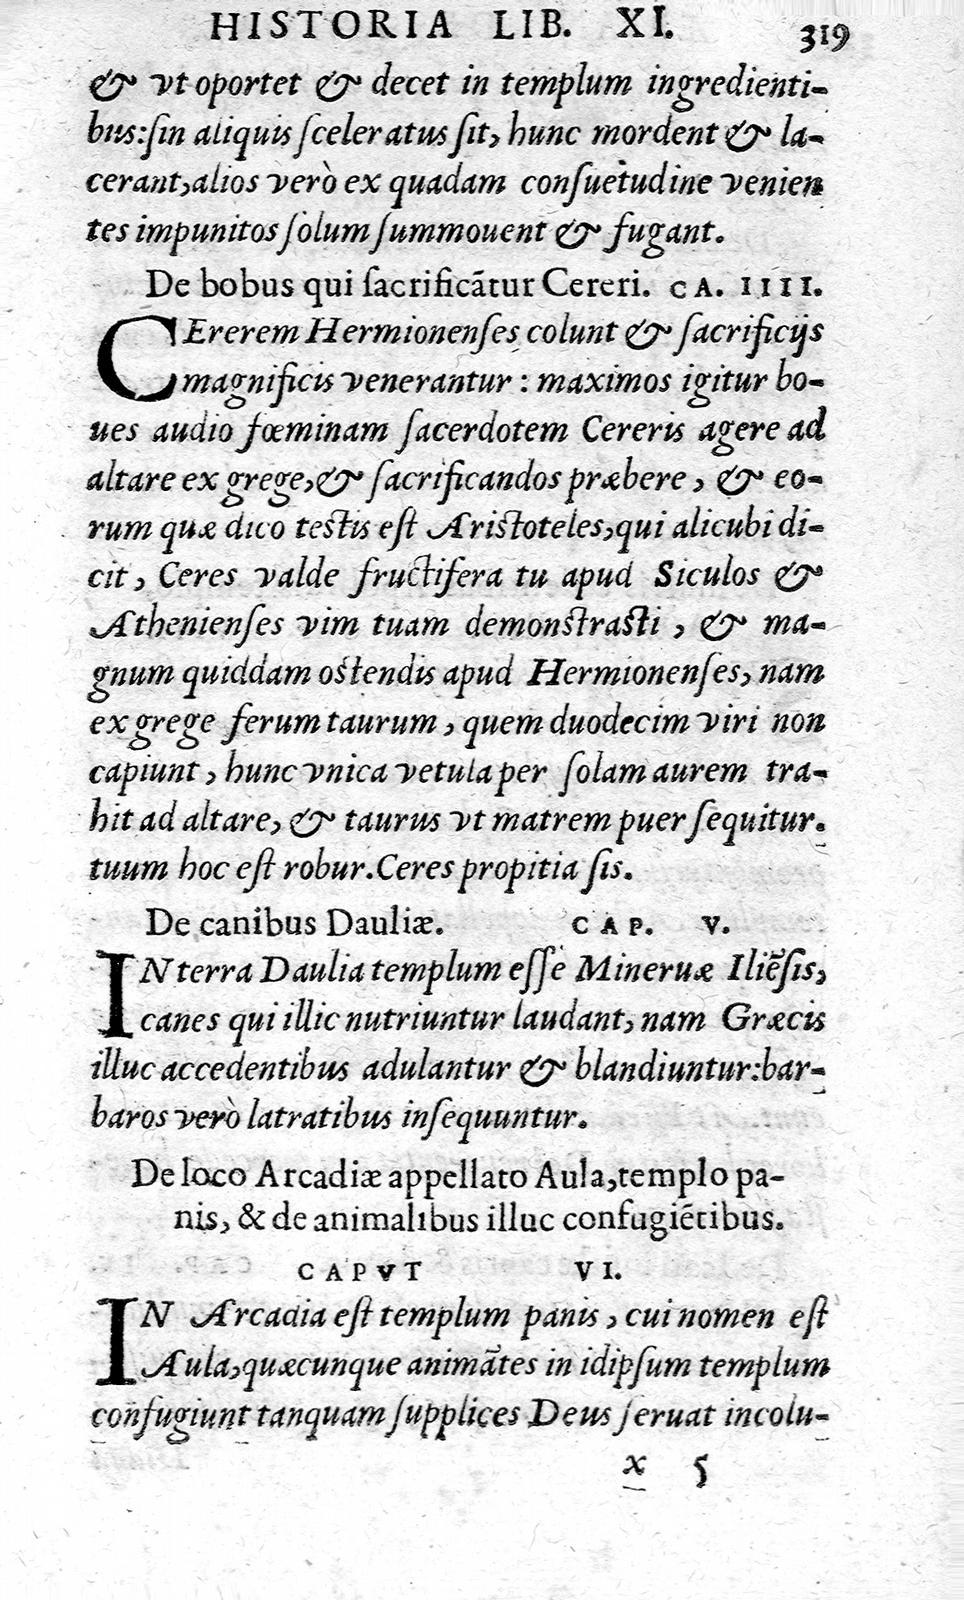 HISTORIA LIB. XI. 319
& vt oportet & decet in templum ingredienti-
bus:ſin aliquis ſceleratus ſit, hunc mordent & la-
cerant,alios verò ex quadam conſuetudine venien
tes impunitos ſolum ſummouent & fugant.
De bobus qui ſacrificãtur Cereri. CA. IIII.
CErerem Hermionenſes colunt & ſacrificijs
magnificis venerantur : maximos igitur bo-
ues audio fœminam ſacerdotem Cereris agere ad
altare ex grege,& ſacrificandos præbere, & eo-
rum quæ dico teſtis eſt Ariſtoteles,qui alicubi di-
cit, Ceres valde fructifera tu apud Siculos &
Athenienſes vim tuam demonſtraſti, & ma-
gnum quiddam oſtendis apud Hermionenſes, nam
ex grege ferum taurum, quem duodecim viri non
capiunt, hunc vnica vetula per ſolam aurem tra-
hit ad altare, & taurus vt matrem puer ſequitur.
tuum hoc eſt robur.Ceres propitia ſis.
De canibus Dauliæ. CAP. V.
IN terra Daulia templum eſſe Mineruæ Iliẽſis,
canes qui illic nutriuntur laudant, nam Græcis
illuc accedentibus adulantur & blandiuntur:bar-
baros verò latratibus inſequuntur.
De loco Arcadiæ appellato Aula,templo pa-
nis, & de animalibus illuc confugiẽtibus.
CAPVT VI.
IN Arcadia eſt templum panis, cui nomen eſt
Aula,quæcunque animãtes in idipſum templum
confugiunt tanquam ſupplices Deus ſeruat incolu-
x 5